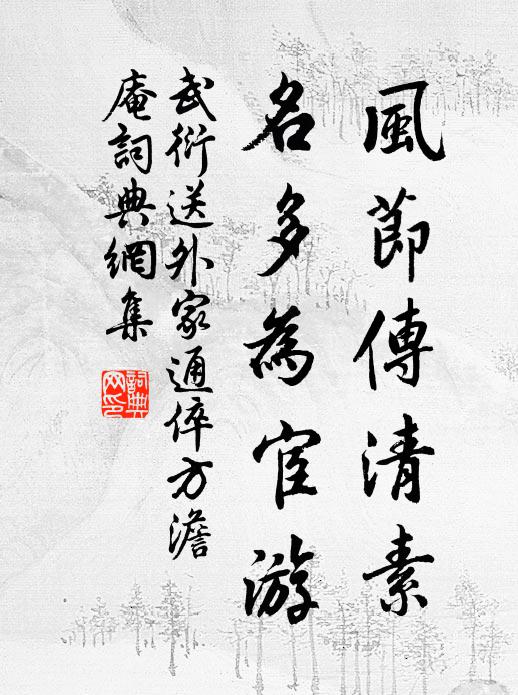 風節傳清素
名多為宦游
武衍送外家通倅方澹
庵詞典網集
詞典網印